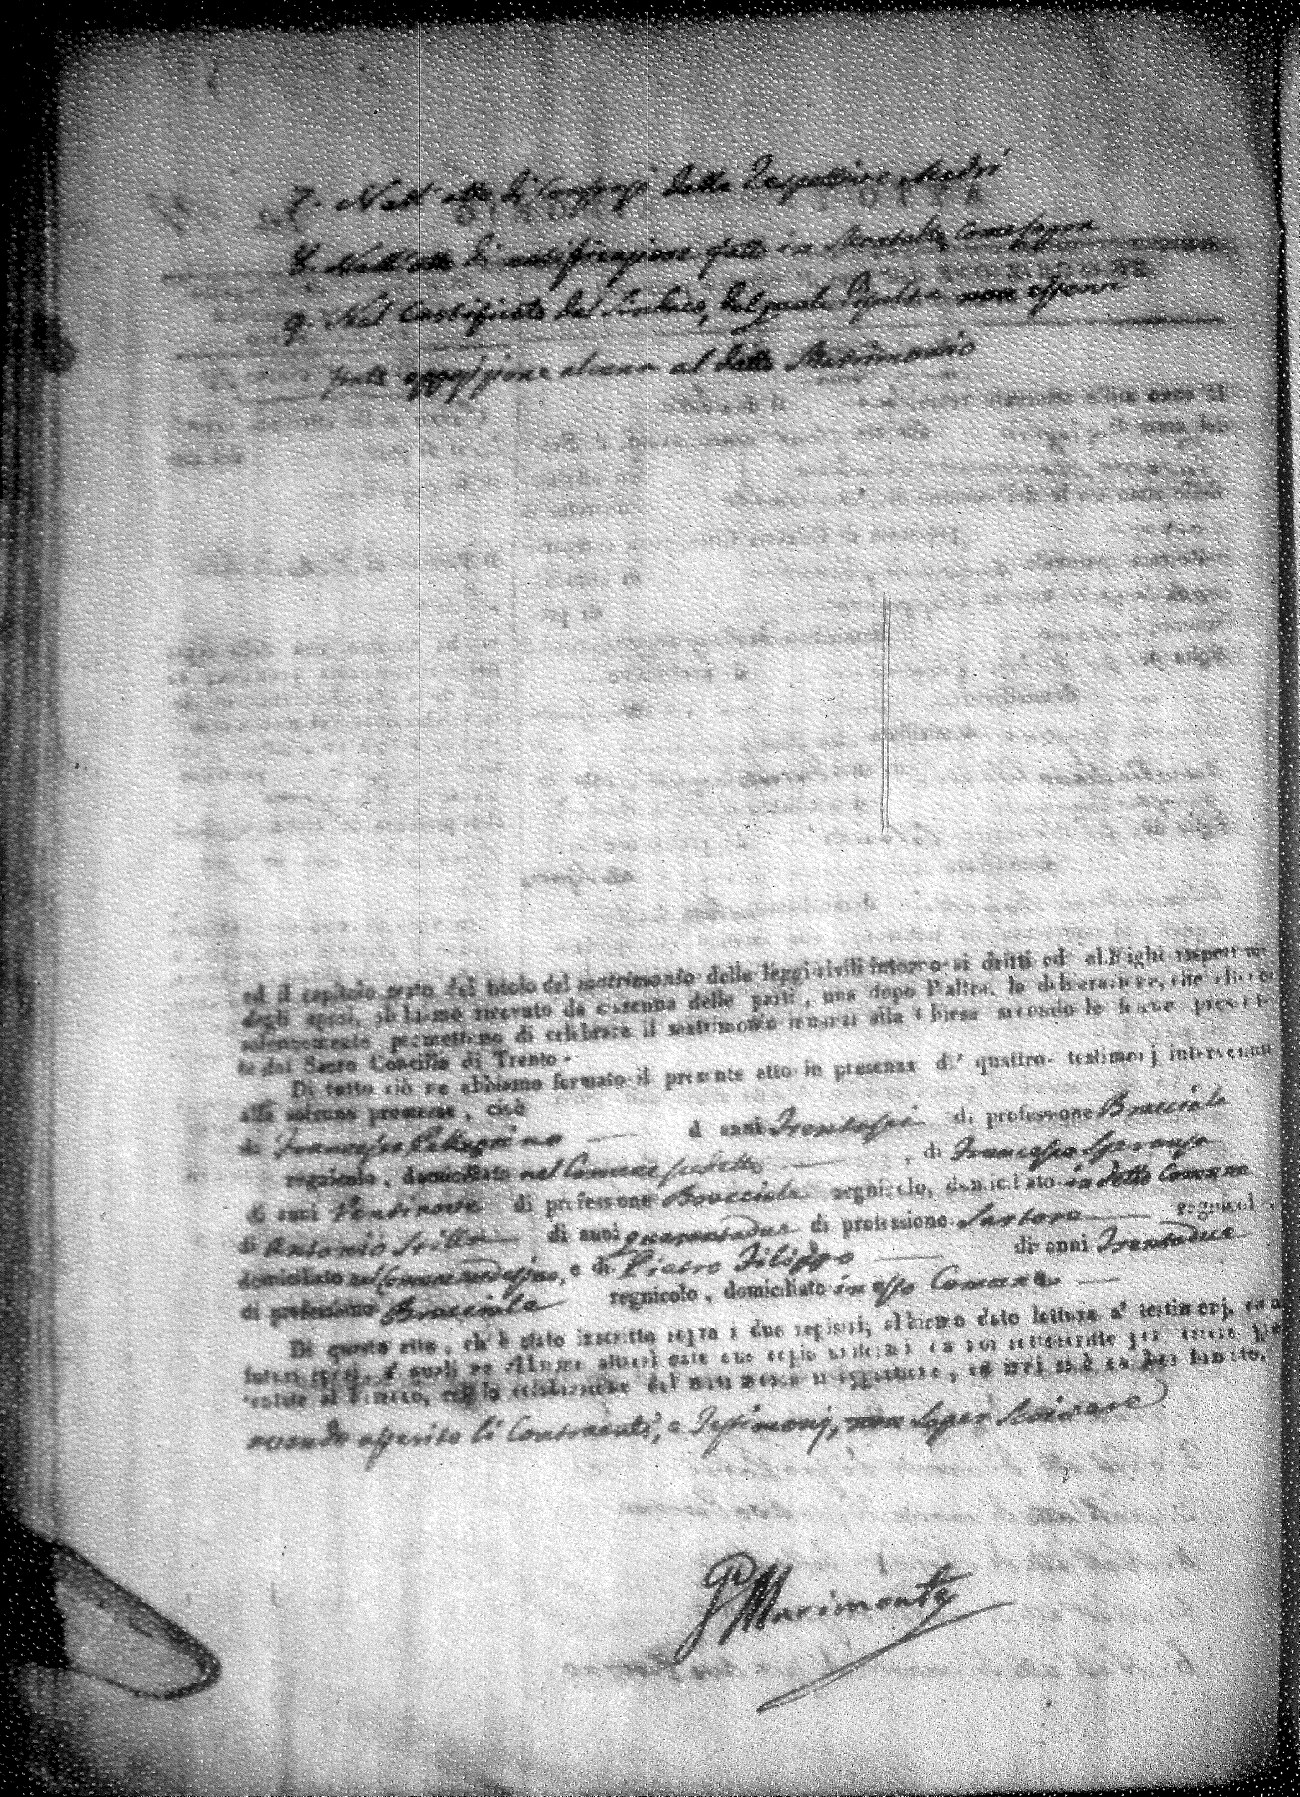 7. Nell'atto di consenso della rispettiva Madri
8. Nell'atto di notificazione fatta in
9. Nel Certificato del Sindaco, dal quale risulta non essersi
fatta opposizione alcuna al detto Matrimonio
ed il capitolo sesto del titolo del matrimonio delle leggi civili intorno ai dritti ed obblighi rispettivi
degli sposi, abbiamo ricevuto da ciascuna delle parti, una dopo l'altra, la dichiarazione, che elleno
solennemente promettono di celebrare il matrimonio innanzi alla Chiesa secondo le forme prescrit-
te dal Sacro Concilio di Trento.
Di tutto ciò ne abbiamo formato il presente atto in presenza de' quattro testimonj intervenuti
alla solenne promessa, cioè
di Francesco Pellegrino d'anni Trentasei di professione Bracciale
regnicolo, domiciliato nel Comune suddetto, di Francesco Speranza
di anni Ventinove di professione Bracciale regnicolo, domiciliato in detto Comune
di Antonio di anni quarantadue di professione Sartore regnicolo
domiciliato nel Comune medesimo, e di Pietro Filippo di anni Trentadue
di professione Bracciale regnicolo, domiciliato in esso Comune
Di questo atto, ch'è stato inscritto sopra i due registri, abbiamo dato lettura a' testimonj, ed a'
futuri sposi, a' quali ne abbiamo altresì date due copie uniformi da noi sottoscritte per essere pre-
sentate al Parroco, cui la celebrazione del matrimonio si appartiene, ed indi si è da noi firmato,
avendo asserito li Contraenti, e Testimonj, non saper scrivere
Marimonte